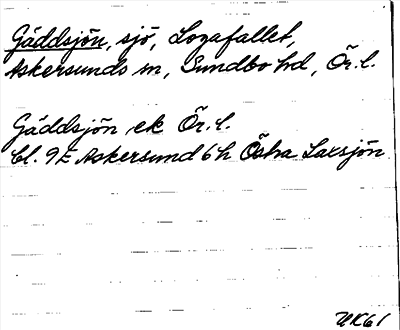 Gäddsjön, sjö, Lozafallet,
Askersunds sn, Sundbo hd, Ör. l.
Gäddsjön ek Ör. l.
bl. 9E Askersund 6h Östra Laxsjön
UK61